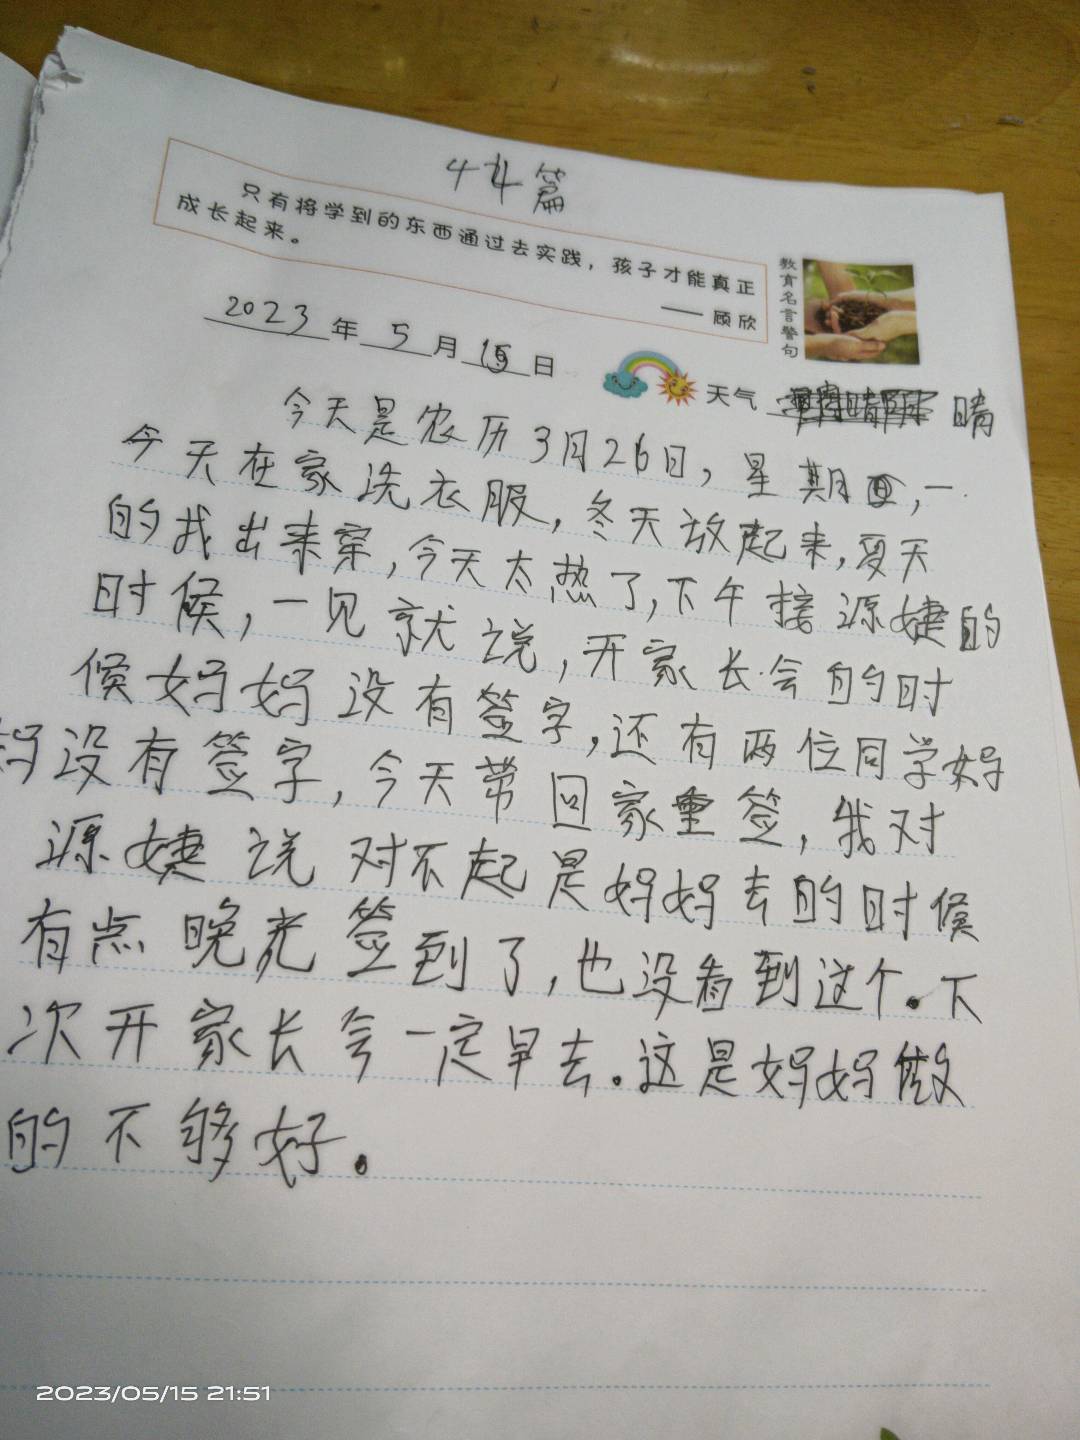 44篇
只有将学到的东西通过去实践，孩子才能真正
成长起来。
—— 顾欣
教育名言警句
2023年5月15日
天气 晴
今天是农历3月26日，星期一.
今天在家洗衣服，冬天放起来，夏天
的找出来穿，今天太热了，下午接源婕的
时候，一见就说，开家长会的时
候妈妈没有签字，还有两位同学妈
妈没有签字，今天带回家重签，我对
源婕说对不起是妈妈去的时候
有点晚光签到了，也没看到这个。下
次开家长会一定早去。这是妈妈做
的不够好。
2023/05/15 21:51